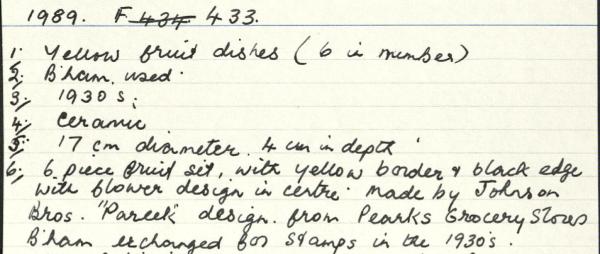 1989. F 434 433.
1. Yellow fruit dishes (6 in number)
2. B'ham. used.
3. 1930s.
4. Ceramic
5. 17 cm diameter. 4 cm in depth.
6. 6 piece fruit set, with yellow border & black edge
with flower design in centre. Made by Johnson
Bros. "Pareek" design. from Pearks Grocery Stores
B'ham exchanged for stamps in the 1930's.